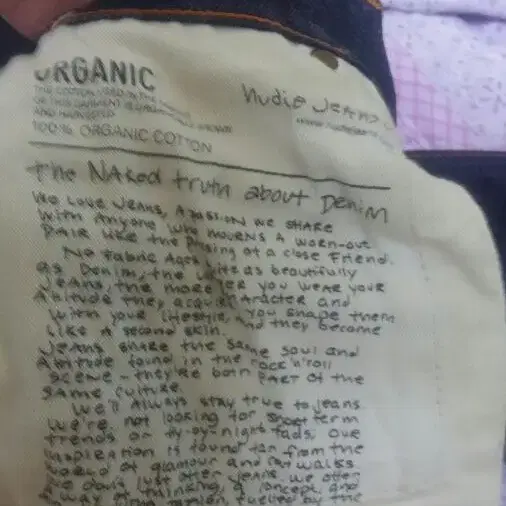 ORGANIC
THE COTTON USED IN THE
OF THIS GARMENT IS ORGANICALLY GROWN
AND HARVESTED
100% ORGANIC COTTON
nudie Jeans
www.nudiejeans
the NAked truth about DeniM
We Love Jeans, A PASSION we SHARE
with Anyone who mourns A worn-out
PAIR like the PAssing of a close Friend.
No fabric Ages as beautifully
as Denim, the you wear your
Jeans, the more character and
Attitude they acquire
With your lifestyle, You shape them
Like A second skin. And they become
Jeans share the same soul and
Attitude found in the rock'n'roll
scene - they're both PART OF the
SAME culture.
We'll Always stay true to jeans
We're not looking for short term
trends or fly-by-night fads. Our
inspiration is found far from the
world of glamour and catwalks
we don't just offer jeans, we offer
A way of thinking, a concept and
fuelled by the